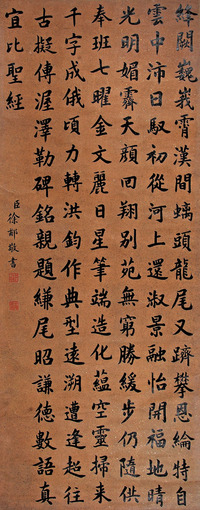 絳闕巍峩霄漢間螭頭龍尾又躋攀恩綸特自
雲中沛日馭初從河上還淑景融怡開福地晴
光明媚霽天顔回翔别苑無窮勝緩步仍隨供
奉班七曜金文麗日星筆端造化蘊空靈掃來
千字成俄頃力轉洪鈞作典型遠溯遭逢超往
古擬傳渥澤勒碑銘親題縑尾昭謙德數語真
宜比聖經
臣徐郙敬書